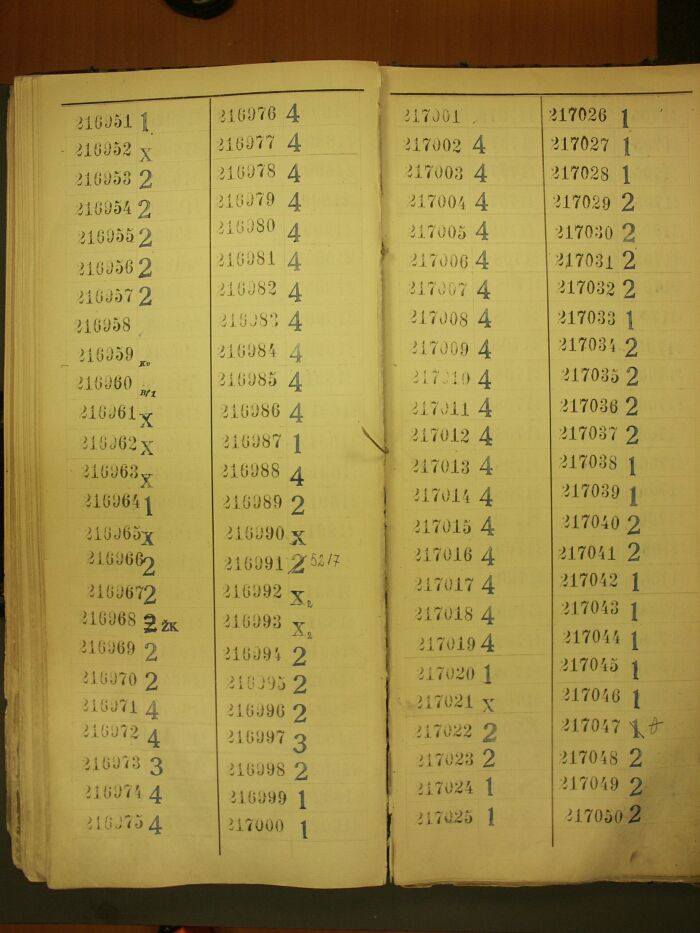 216951 1
216952 X
216953 2
216954 2
216955 2
216956 2
216957 2
216958
216959 Kv
216960 B/1
216961 X
216962 X
216963 X
216964 1
216965 X
216966 2
216967 2
216968 2 ŽK
216969 2
216970 2
216971 4
216972 4
216973 3
216974 4
216975 4
216976 4
216977 4
216978 4
216979 4
216980 4
216981 4
216982 4
216983 4
216984 4
216985 4
216986 4
216987 1
216988 4
216989 2
216990 X
216991 2 52/7
216992 X 2
216993 X 2
216994 2
216995 2
216996 2
216997 3
216998 2
216999 1
217000 1
217001
217002 4
217003 4
217004 4
217005 4
217006 4
217007 4
217008 4
217009 4
217010 4
217011 4
217012 4
217013 4
217014 4
217015 4
217016 4
217017 4
217018 4
217019 4
217020 1
217021 X
217022 2
217023 2
217024 1
217025 1
217026 1
217027 1
217028 1
217029 2
217030 2
217031 2
217032 2
217033 1
217034 2
217035 2
217036 2
217037 2
217038 1
217039 1
217040 2
217041 2
217042 1
217043 1
217044 1
217045 1
217046 1
217047 1
217048 2
217049 2
217050 2